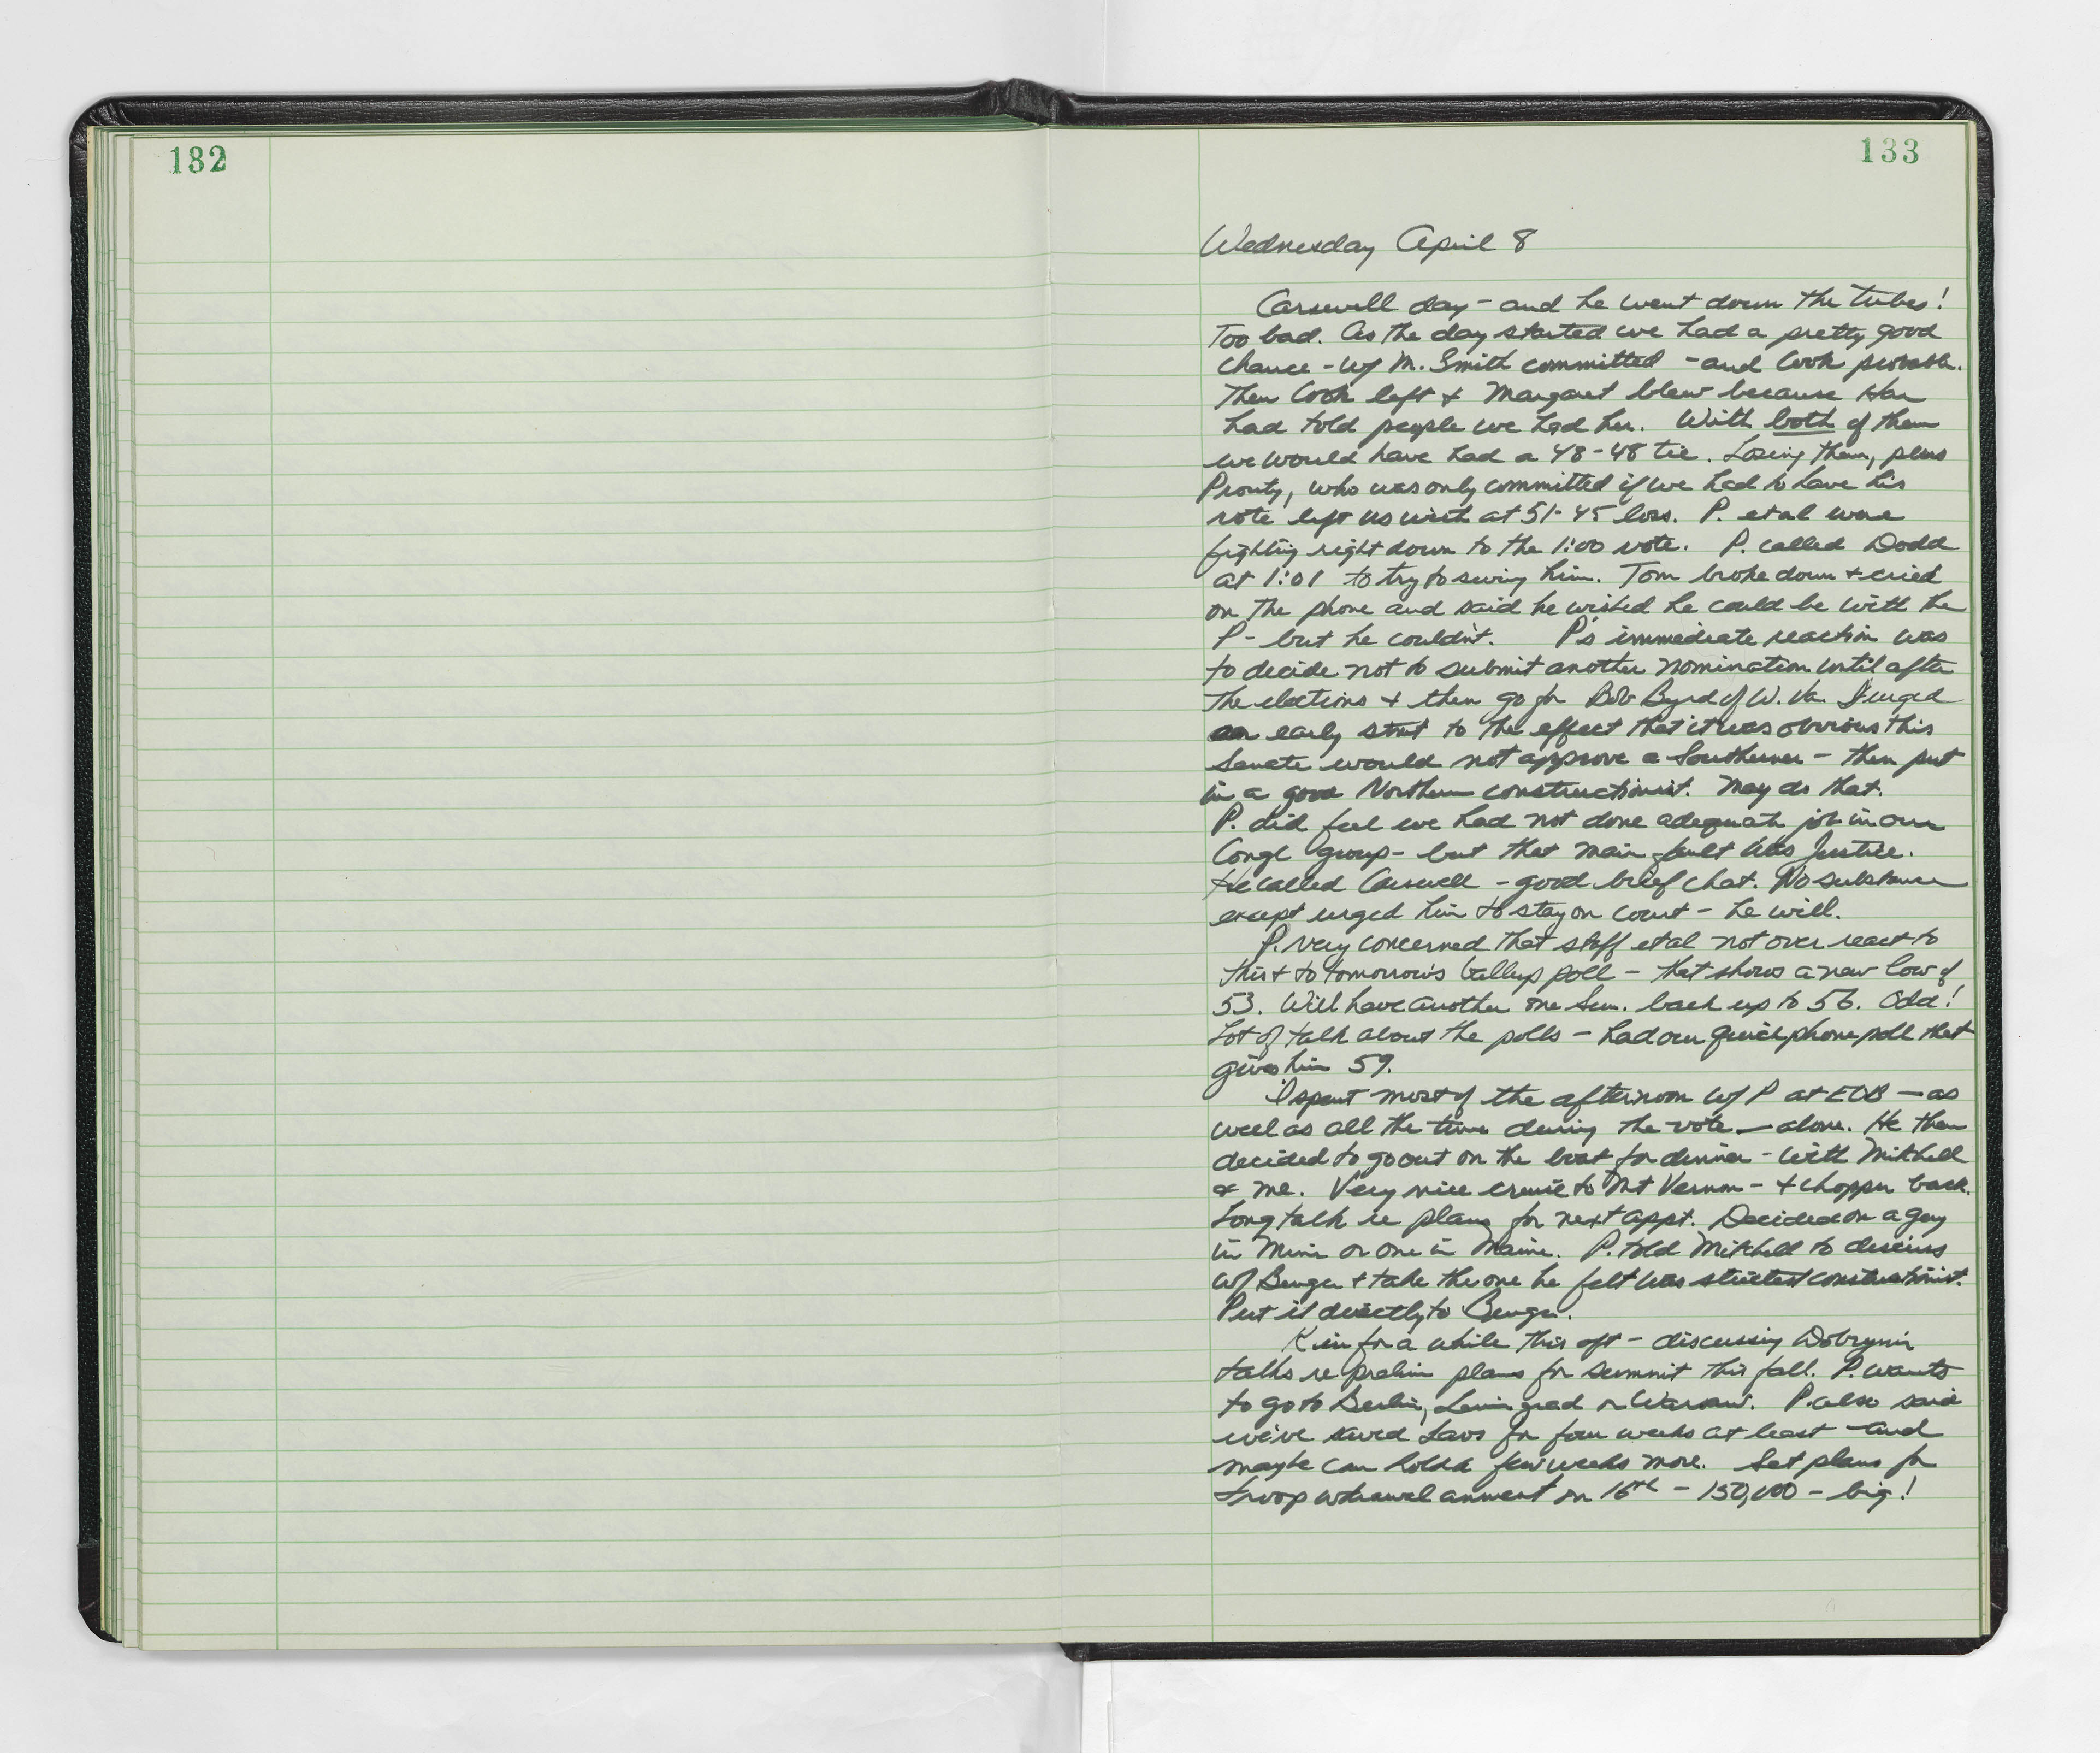 132
133
Wednesday April 8
Carswell day - and he went down the tubes!
Too bad. As the day started we had a pretty good
chance - w/ M. Smith committed - and Cook probable.
Then Cook left + Margaret blew because Har
had told people we had her. With both of them
we would have had a 48-48 tie. Losing them, plus
Prouty, who was only committed if we had to have his
vote left us with at 51-45 loss. P. et al were
fighting right down to the 1:00 vote. P. called Dodd
at 1:01 to try to swing him. Tom broke down + cried
on the phone and said he wished he could be with the
P - but he couldn't. P's immediate reaction was
to decide not to submit another nomination until after
the elections + then go for Bob Byrd of W. Va. I urged
an early stmt to the effect that it was obvious this
Senate would not approve a Southerner - then put
in a good Northern constructionist. May do that.
P. did feel we had not done adequate job in our
Congl group - but that main fault was Justice.
He called Carswell - good brief chat. No substance
except urged him to stay on court - he will.
P. very concerned that staff et al not over react to
this + to tomorrow's Gallup poll - that shows a new low of
53. Will have another one Sun. back up to 56. Odd!
Lot of talk about the polls - had our quick phone poll that
gives him 59.
I spent most of the afternoon w/ P at EOB - as
well as all the time during the vote - alone. He then
decided to go out on the boat for dinner - with Mitchell
+ me. Very nice cruise to Mt Vernon - + chopper back.
Long talk re plans for next appt. Decided on a guy
in Minn or one in Maine. P. told Mitchell to discuss
w/ Burger + take the one he felt was strictest constructionist.
Put it directly to Burger.
K in for a while this aft - discussing Dobrynin
talks re prelim plans for summit this fall. P. wants
to go to Berlin, Leningrad or Warsaw. P also said
we've saved Laos for four weeks at least - and
maybe can hold a few weeks more. Set plans for
troop wdrawal anment on 16th - 150,000 - big!